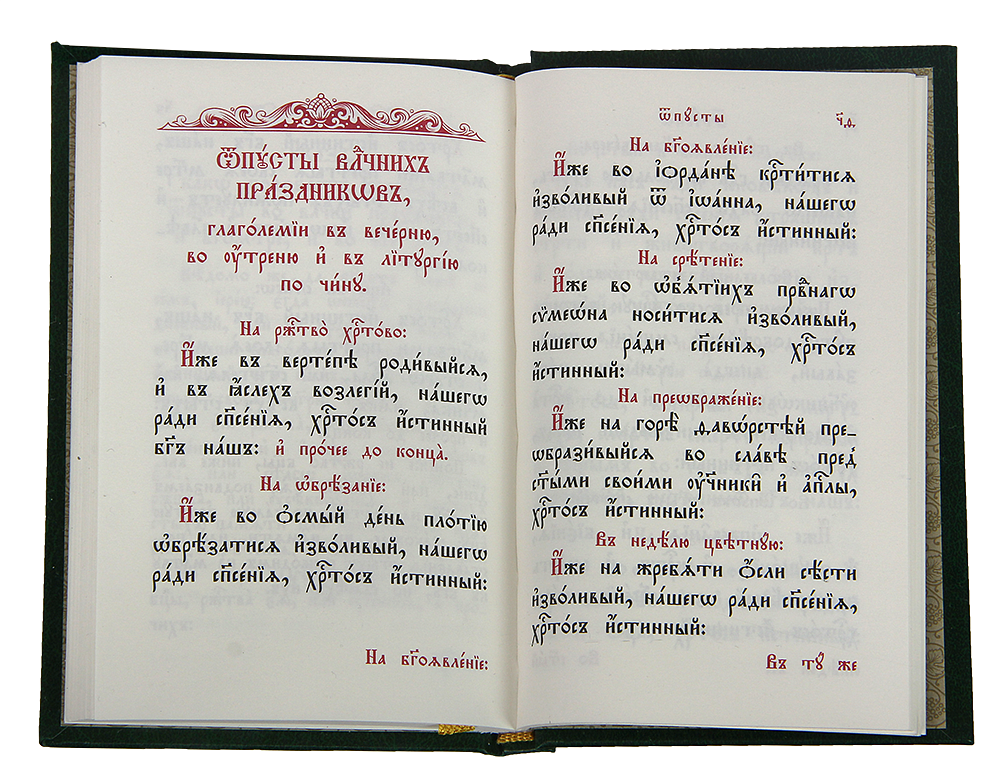 Ѿпꙋ́сты влⷣчнихъ
пра́здникѡвъ,
глаго́лемїи въ вече́рню,
во оу҆́треню и҆ въ лїтꙋргі́ю
по чи́нꙋ.
На ржⷭ҇тво̀ хрⷭ҇то́во:
И҆́же въ верте́пѣ роди́выйсѧ,
и҆ въ ꙗ҆́слехъ возлегі́й, на́шегѡ
ра́ди спⷭ҇е́нїѧ, хрⷭ҇то́съ и҆́стинный
бг҃ъ на́шъ: и҆ про́чее до конца̀.
На ѡ҆брѣ́занїе:
И҆́же во ѻ҆смы́й де́нь пло́тїю
ѡ҆брѣ́затисѧ и҆зво́ливый, на́шегѡ
ра́ди спⷭ҇е́нїѧ, хрⷭ҇то́съ и҆́стинный:
На бг҃оѧвле́нїе:
ѿпꙋсты
ч҃д.
На бг҃оѧвле́нїе:
И҆́же во і҆ѻрда́нѣ крⷭ҇ти́тисѧ
и҆зво́ливый ѿ і҆ѡа́нна, на́шегѡ
ра́ди спⷭ҇е́нїѧ, хрⷭ҇то́съ и҆́стинный:
На срѣ́тенїе:
И҆́же во ѡ҆б̾ѧ́тїихъ првⷣнагѡ
сѷмеѡ́на носи́тисѧ и҆зво́ливый,
на́шегѡ ра́ди спⷭ҇е́нїѧ, хрⷭ҇то́съ
и҆́стинный:
На преѡбраже́нїе:
И҆́же на горѣ̀ ѳавѡ́рстѣй пре_
ѡбрази́выйсѧ во сла́вѣ пред̾
ст҃ы́ми свои́ми оу҆ч҃никѝ и҆ а҆пⷭ҇лы,
хрⷭ҇то́съ и҆́стинный:
Въ недѣ́лю цвѣ́тнꙋю:
И҆́же на жребѧ́ти ѻ҆́сли сѣ́сти
и҆зво́ливый, на́шегѡ ра́ди спⷭ҇е́нїѧ,
хрⷭ҇то́съ и҆́стинный:
Въ тꙋ́ же